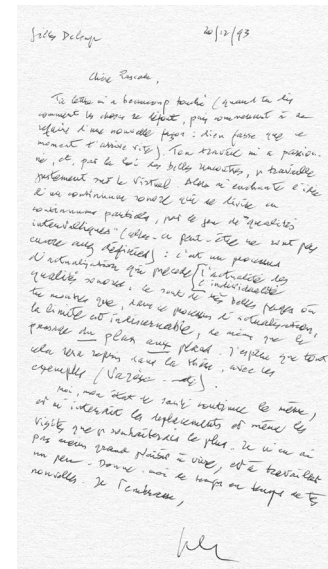 Gilles Deleuze 20/12/93
Chère Pascale,
Ta lettre m'a beaucoup touché (quand tu dis
comment les choses se défont, puis commencent à se
refaire d'une nouvelle façon : dieu fasse que ce
moment t'arrive vite). Ton travail m'a passion-
né, et, par la loi des billes, je travaille
justement sur le virtuel. Alors m'enchante l'idée
d'un continuum sonore qui se divise en
continuums partiels, par le jeu de "qualités
intervalliques" (elles-ci peut-être ne sont pas
encore assez définies) : c'est un processus
d'actualisation qui précède l'actualité des
l'individualité
qualités sonores. Ce sont de très belles pages où
tu montres que, dans ce processus d'actualisation,
la limite est indiscernable, de même que le
passage du plan aux placés. J'espère que tout
cela sera repris dans la thèse, avec les
exemples (Varèse).
Moi, mon état de santé continue le même,
et m'interdit les déplacements et même les
visites que je souhaiterais le plus. Je n'en ai
pas moins grand plaisir à vivre, et à travailler
un peu. Donne-moi de temps en temps de tes
nouvelles. Je t'embrasse,